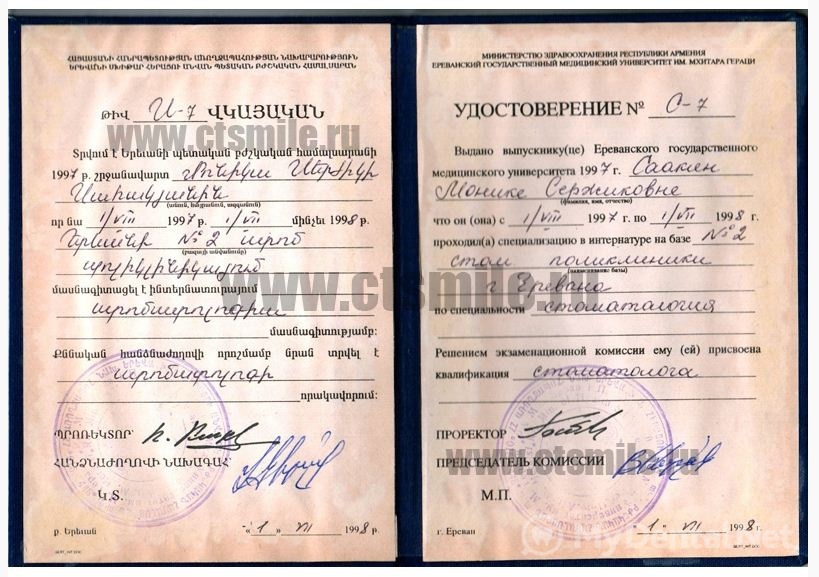 ՀԱՅԱՍՏԱՆԻ ՀԱՆՐԱՊԵՏՈՒԹՅԱՆ ԱՌՈՂՋԱՊԱՀՈՒԹՅԱՆ ՆԱԽԱՐԱՐՈՒԹՅՈՒՆ
ԵՐԵՎԱՆԻ ՄԽԻԹԱՐ ՀԵՐԱՑՈՒ ԱՆՎԱՆ ՊԵՏԱԿԱՆ ԲԺՇԿԱԿԱՆ ՀԱՄԱԼՍԱՐԱՆ
ԹԻՎ Ս-7 ՎԿԱՅԱԿԱՆ
www.ctsmile.ru
Տրվում է Երևանի պետական բժշկական համալսարանի
1997 թ. շրջանավարտ Մոնիկա Սերժիկի
Սահակյանին
(անուն, հայրանուն, ազգանուն)
որ նա 1/VIII 1997 թ. 1/VII մինչև 1998 թ.
Երևանի №2 ստոմ
(բազայի անվանումը)
պոլիկլինիկայում
մասնագիտացել է ինտերնատուրայում
ստոմատոլոգիա
մասնագիտությամբ:
Քննական հանձնաժողովի որոշմամբ նրան տրվել է
ստոմատոլոգի
որակավորում:
ՊՐՈՌԵԿՏՈՐ
ՀԱՆՁՆԱԺՈՂՈՎԻ ՆԱԽԱԳԱՀ
Կ.Տ.
ք. Երևան «1» VII 1998 թ.
МИНИСТЕРСТВО ЗДРАВООХРАНЕНИЯ РЕСПУБЛИКИ АРМЕНИЯ
ЕРЕВАНСКИЙ ГОСУДАРСТВЕННЫЙ МЕДИЦИНСКИЙ УНИВЕРСИТЕТ ИМ. МХИТАРА ГЕРАЦИ
УДОСТОВЕРЕНИЕ № С-7
www.ctsmile.ru
Выдано выпускнику(це) Ереванского государственного
медицинского университета 1997 г. Саакян
Монике Сержиковне
(фамилия, имя, отчество)
что он (она) с 1/VIII 1997 г. по 1/VII 1998 г.
проходил(а) специализацию в интернатуре на базе №2
стом поликлиники
(наименование базы)
г Еревана
www.ctsmile.ru
по специальности стоматология
Решением экзаменационной комиссии ему (ей) присвоена
квалификация стоматолога
ПРОРЕКТОР
ПРЕДСЕДАТЕЛЬ КОМИССИИ
М.П.
г. Ереван «1» VII 1998 г.